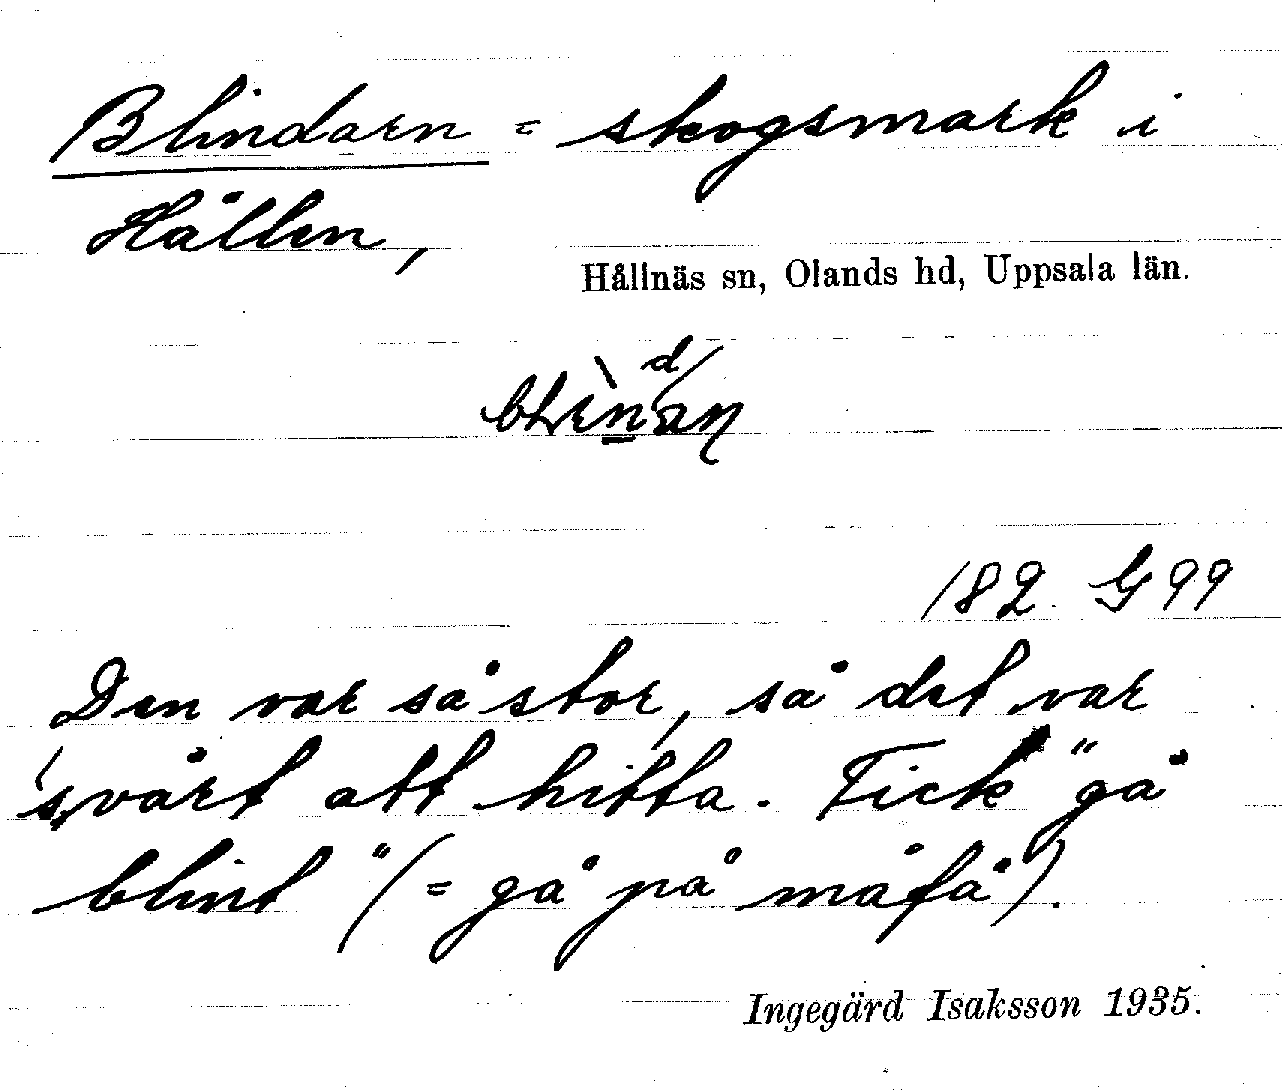 Blindarn = skogsmark i
Hållen,
Hållnäs sn, Olands hd, Uppsala län.
182 G 99
Den var så stor, så det var
svårt att hitta. Fick "gå
blint" (= gå på måfå).
Ingegärd Isaksson 1935.